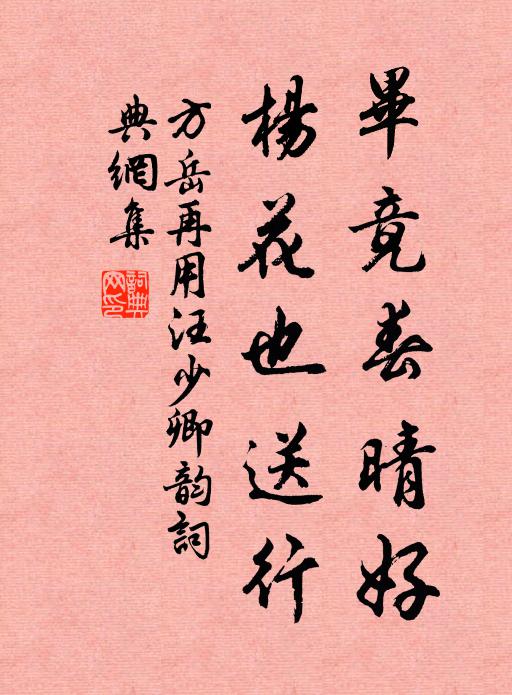 畢竟春晴好
楊花也送行
方岳再用汪少卿韵詞
典網集
詞典網印